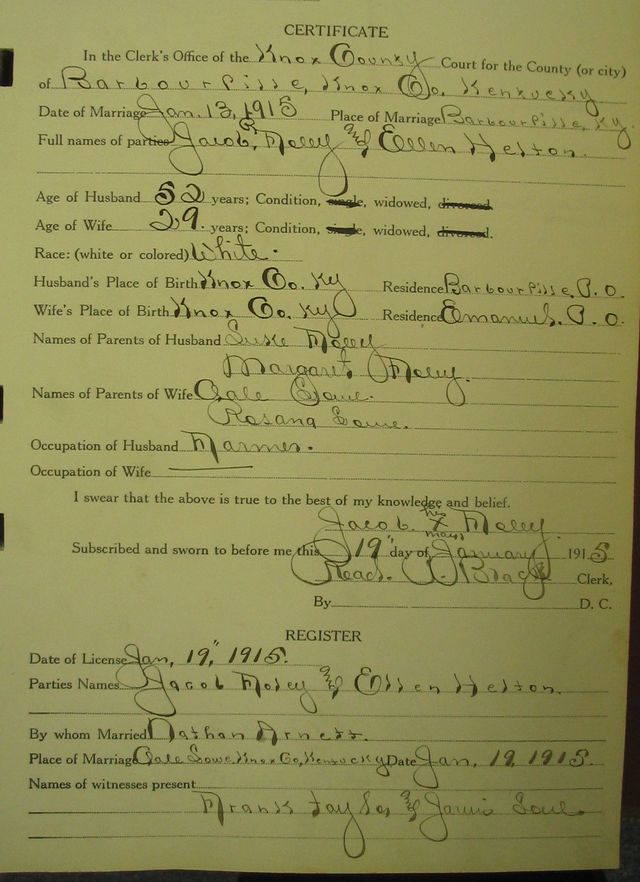 CERTIFICATE
In the Clerk's Office of the Knox County Court for the County (or city)
of Barbourville, Knox Co. Kentucky
Date of Marriage Jan. 13, 1915 Place of Marriage Barbourville, Ky.
Full names of parties Jacob Mosey and Ellen Helton.
Age of Husband 52 years; Condition, single, widowed, divorced
Age of Wife 29. years; Condition, single, widowed, divorced.
Race: (white or colored) White.
Husband's Place of Birth Knox Co. Ky Residence Barbourville, P. O.
Wife's Place of Birth Knox Co. Ky Residence Emanuel. P. O.
Names of Parents of Husband
Margaret
Names of Parents of Wife
Rosana
Occupation of Husband Farmer.
Occupation of Wife
I swear that the above is true to the best of my knowledge and belief.
Jacob his X mark
Subscribed and sworn to before me this 19" day of January 1915
Read. Black Clerk,
By D. C.
REGISTER
Date of License Jan, 19," 1915.
Parties Names Jacob and Ellen Helton.
By whom Married Nathan
Place of Marriage Knox Co, Kentucky Date Jan. 19, 1915.
Names of witnesses present
Frank Taylor &